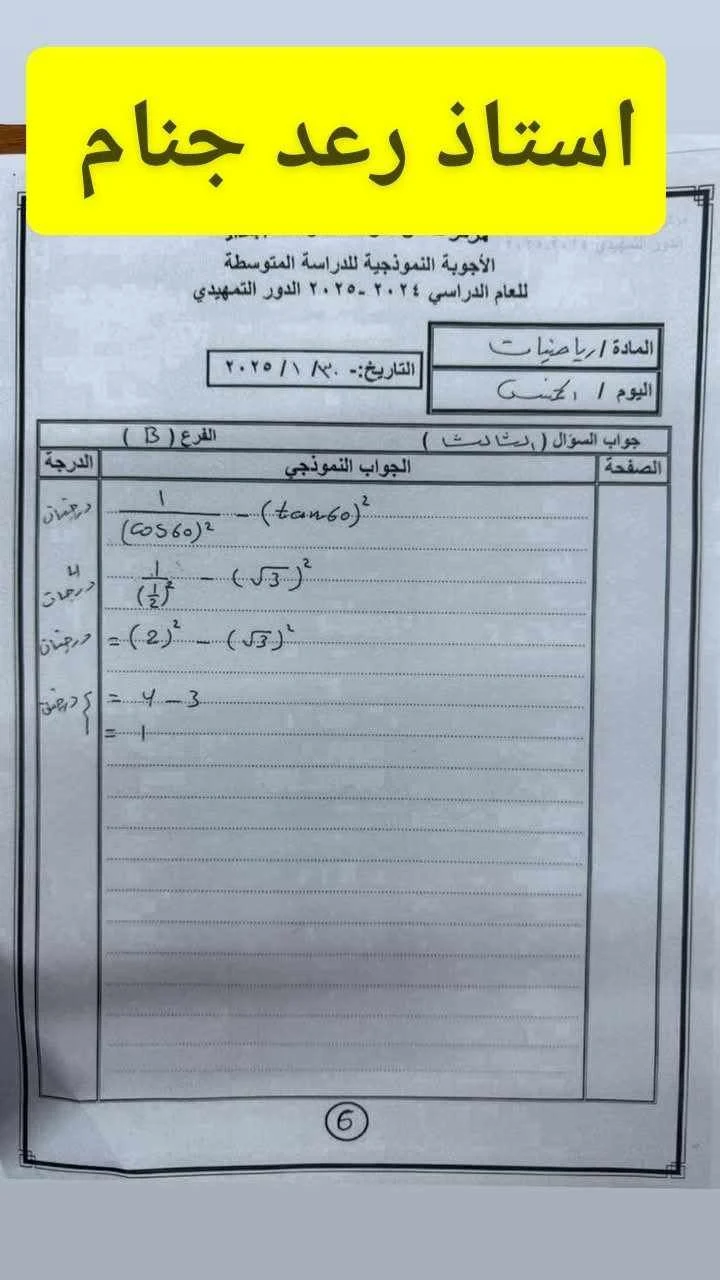 استاذ رعد جنام
الأجوبة النموذجية للدراسة المتوسطة
للعام الدراسي ٢٠٢٤ -٢٠٢٥ الدور التمهيدي
المادة / رياضيات
اليوم / الخميس
التاريخ:- ٣٠/ ١/ ٢٠٢٥
جواب السؤال ( الثالث ) الفرع ( B )
الصفحة الجواب النموذجي الدرجة
1/(cos60)² - (tan60)² درجتان
1/(1/2)² - (√3)² درجات
= (2)² - (√3)² درجتان
= 4 - 3 درجتان
= 1
6